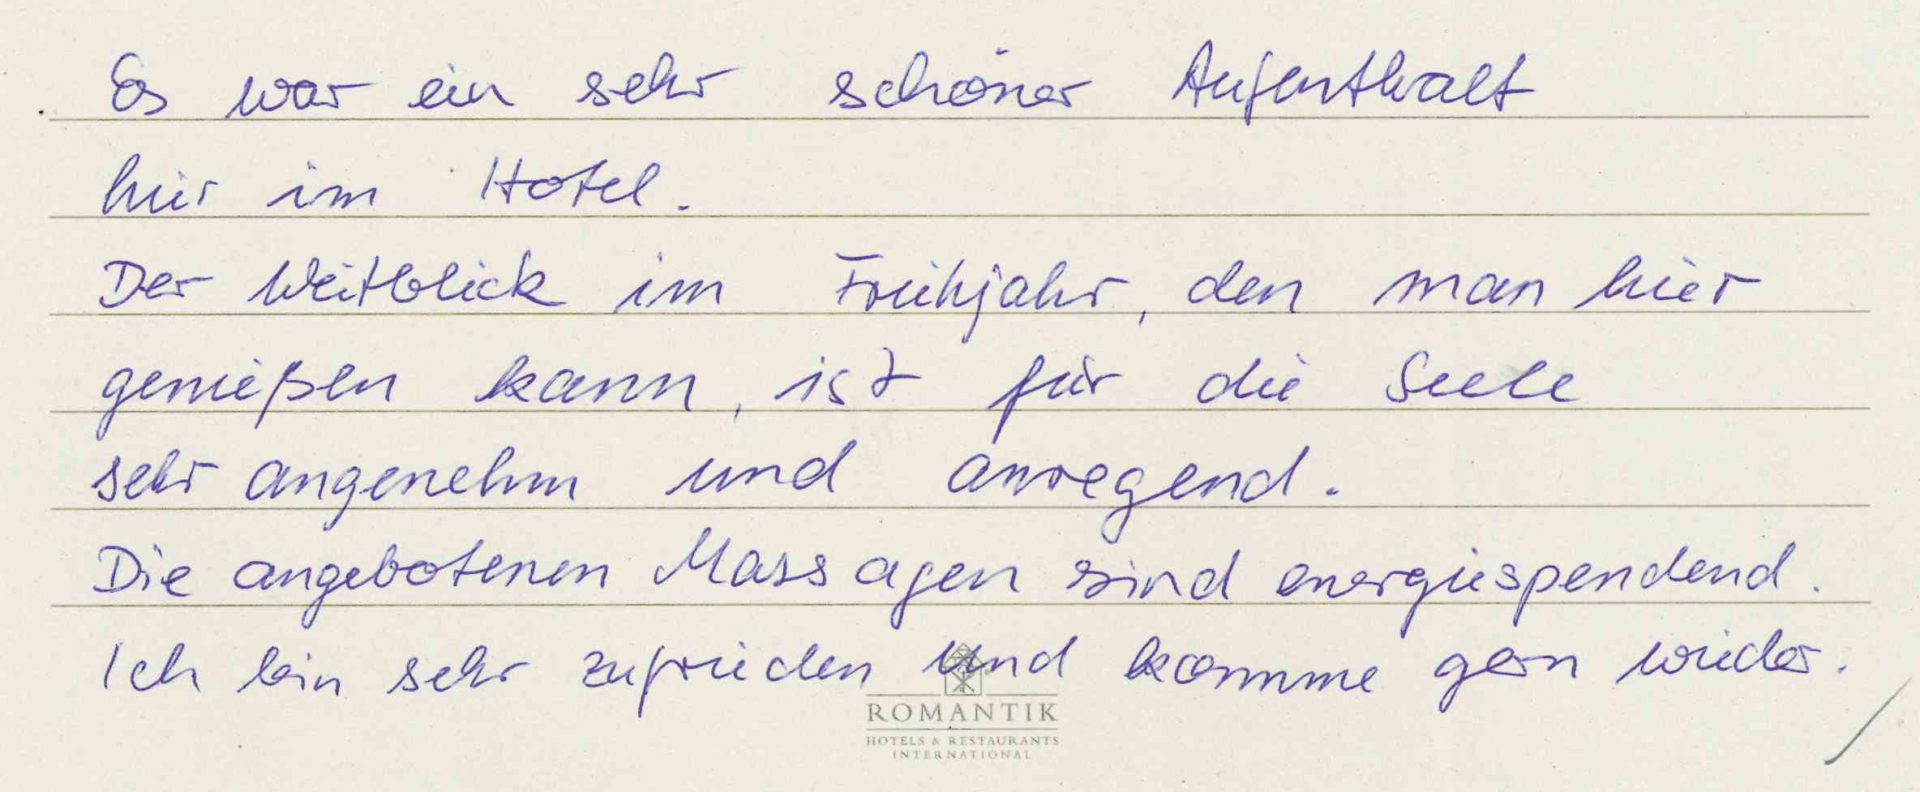 Es war ein sehr schöner Aufenthalt
hier im Hotel.
Der Weitblick im Frühjahr, den man hier
genießen kann, ist für die Seele
sehr angenehm und anregend.
Die angebotenen Massagen sind energiespendend.
Ich bin sehr zufrieden und komme gern wieder.
ROMANTIK
HOTELS & RESTAURANTS
INTERNATIONAL